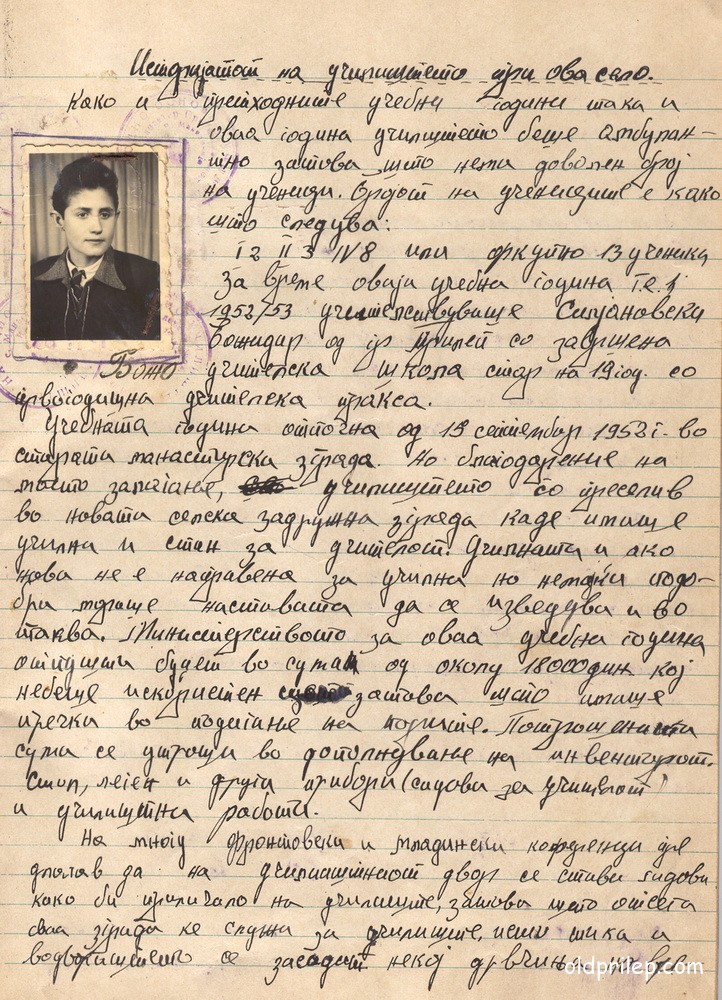 Историјатот на училиштето при ова село.
Како и претходните учебни години така и
оваа година училиштето беше амбулан-
тно затова што нема доволен број
на ученици. Бројот на учениците е како
што следува:
I 2 II 3 IV 8 или вкупно 13 ученика
За време оваја учебна година т.е.
1952/53 учителствуваше Силјановски
Божидар од гр Прилеп со завршена
Божо учителска школа стар на 19 год. со
првогодишна учителска пракса.
Учебната година отпочна од 15 септембар 1952 г. во
старата манастирска зграда. Но благодарение на
моето залагање, училиштето со преселив
во новата селска задружна зграда каде имаше
училна и стан за учителот. Училната и ако
нова не е направена за училна но немајќи подо-
бри мораше наставата да се изведува и во
таква. Министерството за оваа учебна година
отпушти буџет во сума од околу 18000 дин кој
небеше искористен затова што имаше
пречки во подигање на парите. Потрошената
сума се утроши во дополнување на инвентарот.
Стол, леген и други прибори (садови за учителот)
и училиштни работи.
На многу фронтовски и младински конференци пре
длогав да на училиштниот двор се стави ѕидови
како би приличало на училиште, затова што отсега
оваа зграда ќе служи за училиште, исти така и
во се засадат некој дрвчиња на
oldprilep.com